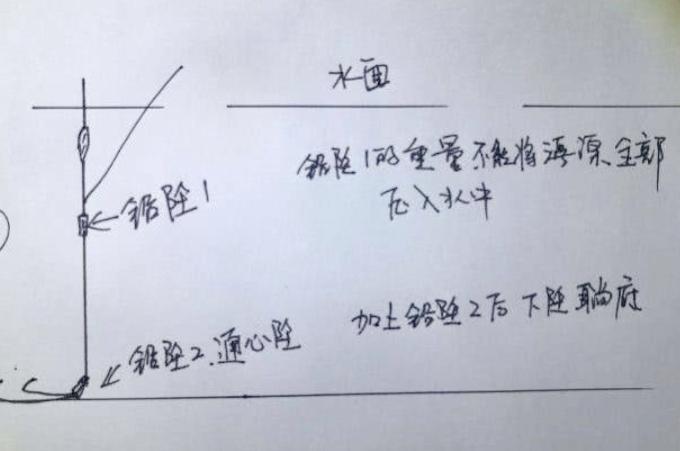 水面
铅坠1的重量不能将浮漂全部
压入水中
铅坠1
加上铅坠2后下坠躺底
铅坠2.通心坠